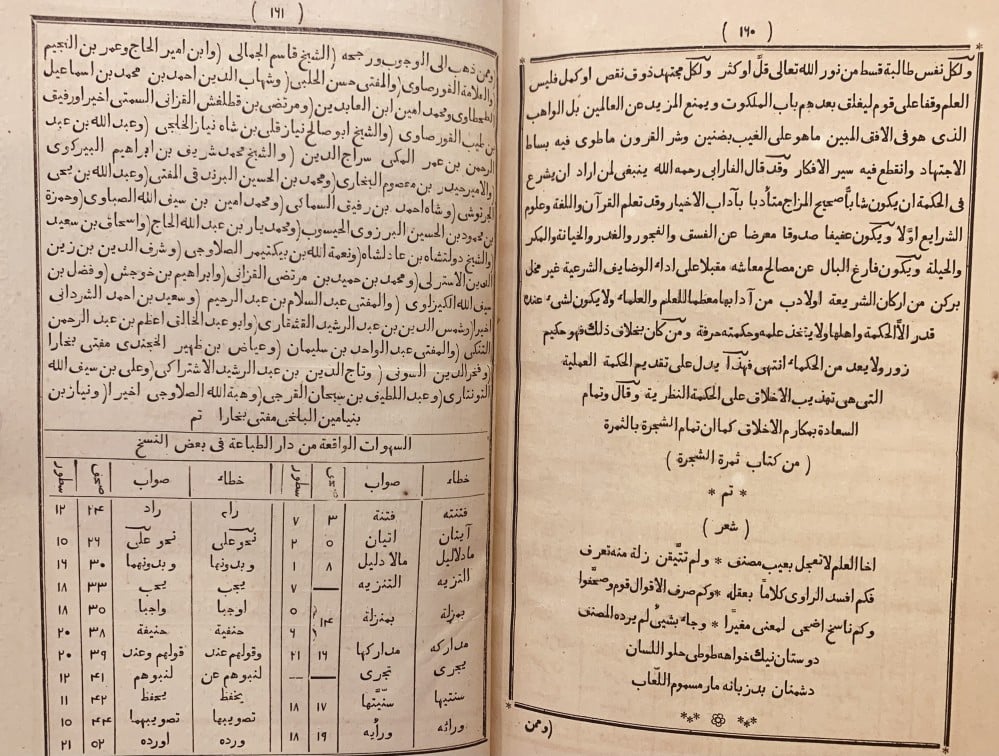 ( ١٦٠ )
ولكل نفس طالبة قسط من نور الله تعالى قل او كثر ولكل مجتهد ذوق نقص او كمل فليس
العلم وقفا على قوم ليغلق بعدهم باب الملكوت ويمنع المزيد عن العالمين بل الواهب
الذى هو فى الافق المبين ماهو على الغيب بضنين وشر القرون ماطوى فيه بساط
الاجتهاد وانقطع فيه سير الافكار وقد قال الفارابى رحمه الله ينبغى لمن اراد ان يشرع
فى الحكمة ان يكون شابّا صحيح المزاج متأدبا بآداب الاخيار وقد تعلم القرآن واللغة وعلوم
الشرايع اوّلا ويكون عفيفا صدوقا معرضا عن الفسق والفجور والغدر والخيانة والمكر
والحيلة ويكون فارغ البال عن مصالح معاشه مقبلا على اداء الوضايف الشرعية غير مخل
بركن من اركان الشريعة اولادب من آدابها معظما للعلم والعلماء ولا يكون لشىء عنده
قدر الاّ الحكمة واهلها ولا يتخذ علمه وحكمته حرفة ومن كان بخلاف ذلك فهو حكيم
زور ولا يعد من الحكماء انتهى فهذا يدل على تقديم الحكمة العملية
التى هى تهذيب الاخلاق على الحكمة النظرية وقال وتمام
السعادة بمكارم الاخلاق كما ان تمام الشجرة بالثمرة
( من كتاب ثمرة الشجرة )
* تم *
( شعر )
اخا العلم لا تعجل بعيب مصنف * ولم تتيّقن زلة منه تعرف
فكم افسد الراوى كلاماً بعقله * وكم صرف الاقوال قوم وصحّفوا
وكم ناسخ اضحى لمعنى مغيرا * وجاء بشيئ لم يرده المصنف
دوستان نيك خواهه طوطى حلو اللسان
دشمنان بد زبانه مار مسموم اللّعاب
(وممن
( ١٦١ )
وممن ذهب الى الوجوب ورجحه (الشيخ قاسم الجمالى (وابن امير الحاج وعمر بن النجيم
(والعلامة القورصاوى (والمفتى حسن الحلبى (وشهاب الدين احمد بن محمد بن اسماعيل
الطحطاوى ومحمد امين ابن العابدين (ومرتضى بن قطلغش القزانى السمتى اخيرا ورفيق
بن طيب القورصاوى (والشيخ ابو صالح نياز قلى بن شاه نياز الخلجى (وعبد الله بن عبد
الرحمن بن عمر المكى سراج الدين (والشيخ محمد شريف بن ابراهيم البيركوى
(والامير حيدر بن معصوم البخارى (ومحمد بن الحسين البرندقى المفتى (وعبد الله بن يحى
الچرتوشى (وشاه احمد بن رفيق السماكى (ومحمد امين بن سيف الله الصباوى (وحمزة
بن محمود بن الحسين البرزوى الچيسوب (ومحمد يار بن عبد الله الحاج (واسحاق بن سعيد
(والشيخ دولتشاه بن عادلشاه (ونعمة الله بن بيكتيمر الصلاوجى (وشرف الدين بن زين
الدين الاسترلى (ومحمد بن حميد بن مرتضى القزانى (وابراهيم بن خوجش (وفضل بن
سيف الله الكيزلوى (والمفتى عبد السلام بن عبد الرحيم (وسعيد بن احمد الشردانى
اخيرا (وشمس الدين بن عبد الرشيد القشقارى (وابو عبد الخالق اعظم بن عبد الرحمن
التنكى (والمفتى عبد الواحد بن سليمان (وعياض بن ظهير الخجندى مفتى بخارا
(وفخر الدين السونى (وتاج الدين بن عبد الرشيد الاشتراكى (وعلى بن سيف الله
التونتارى (وعبد اللطيف بن سبحان القرجى (وهبة الله الصلاوجى اخيرا (ونياز بن
بنيامين البلخى مفتى بخارا تم
السهوات الواقعة من دار الطباعة فى بعض النسخ
خطاء صواب صحف سطور خطاء صواب صحف سطور
فتنته فتنة ٣ ٧ راء راد ٢٤ ١٢
آيتان اتيان ٥ ٢ نحو على نحو علىّ ٢٦ ١٥
مادلاليل مالا دليل ٨ ١ وبدونها وبدونهما ٣٠ ١٦
التزيه التنزيه — ٧ يجب يجب ٣٣ ١٨
بمزلة بمنزلة ١٤ ٥ ٦ اوجبا واجبا ٣٥ ١٨
حنفية حنيفة ٣٨ ٢٠
مداركه مداركها ١٦ ٢١ وقولهم وعند قولهم وعند ٣٩ ٢٠
يجرى تجرى — — لنبوهم عن لنبوهم ٤١ ١٢
سنتيها سنّيّتها ١٧ ١٨ يخفظ يحفظ ٤٢ ١١
تصويبها تصويبهما ٤٤ ١٥
ورائه ورأيه ١٩ ١٨ ورده اورده ٥٢ ٢١